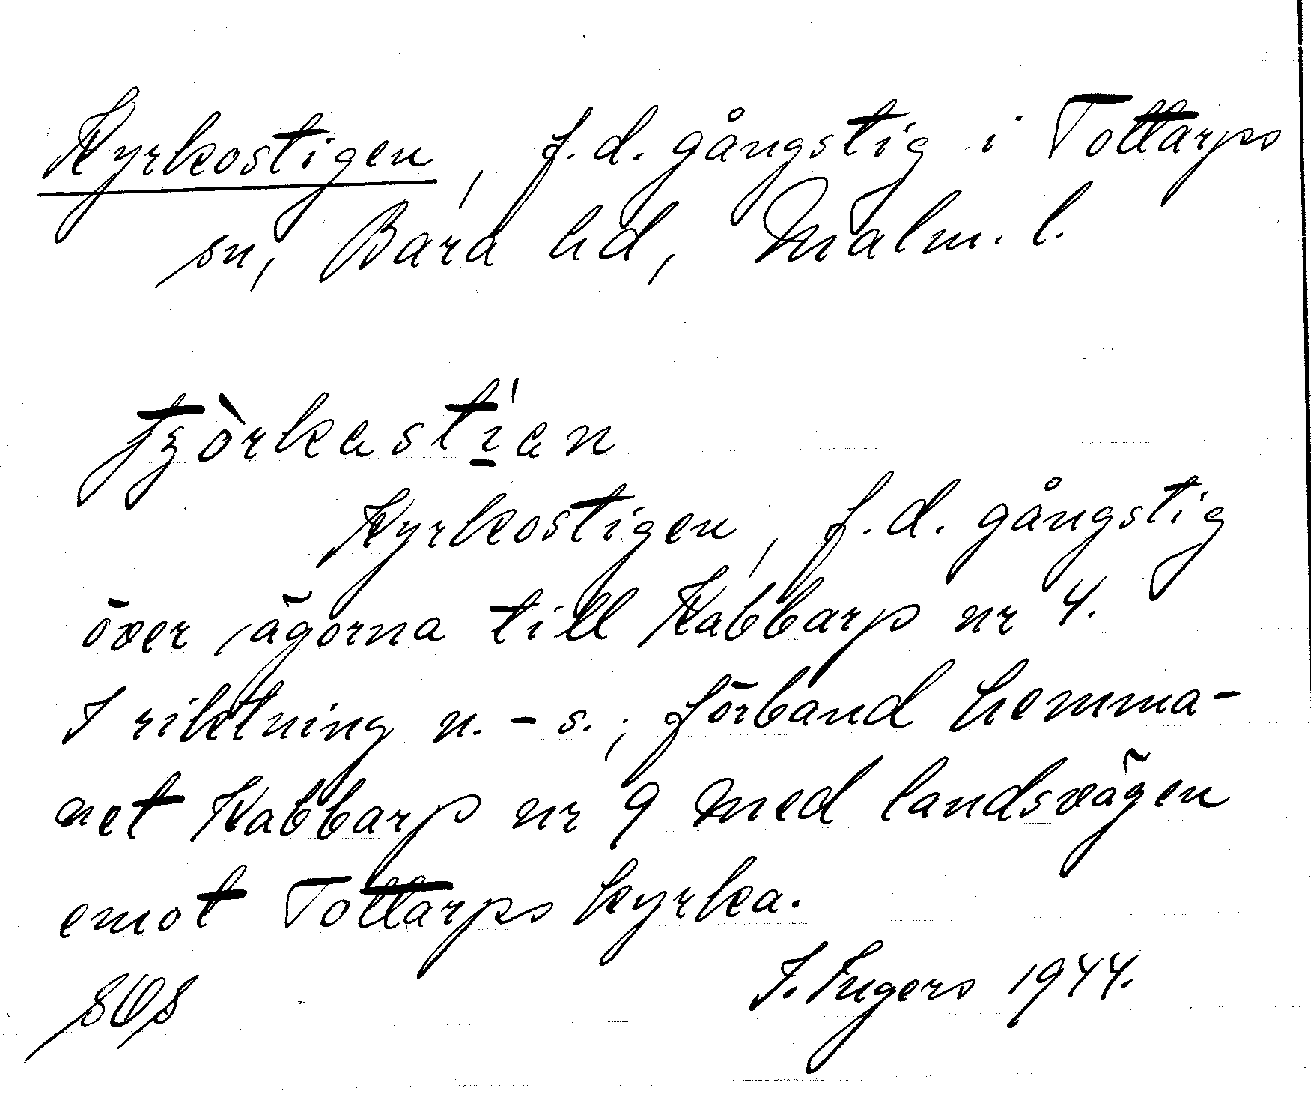 Kyrkostigen, f.d. gångstig i Tottarps
sn, Bara hd, Malm. l.
Kyrkostigen, f.d. gångstig
över ägorna till Kabbarp nr 4.
I riktning n. - s.; förband hemma-
net Kabbarp nr 9 med landsvägen
emot Tottarps kyrka.
I. Ingers 1944.